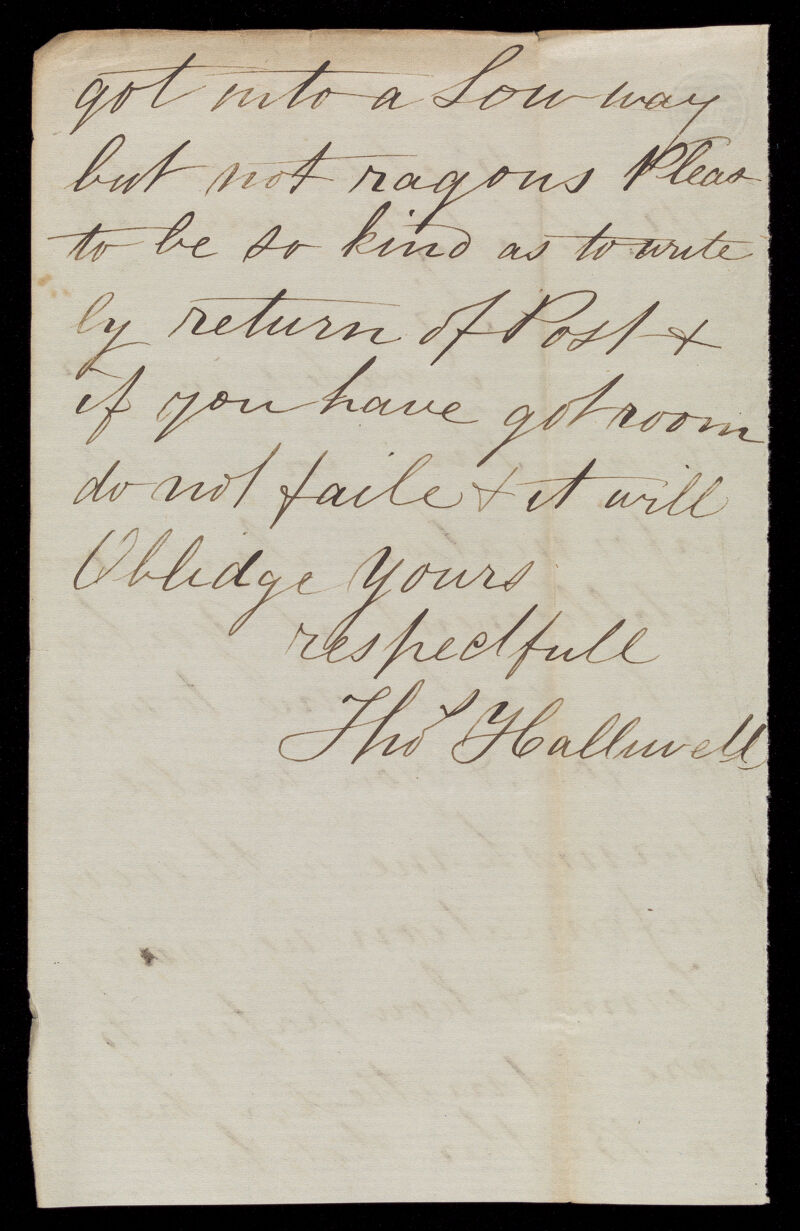 got into a Low way
but not ragous Pleas
to be so kind as to write
by return of Post &
if you have got room
do not faile & it will
Oblidge Yours
respectfull
Thos Halliwell